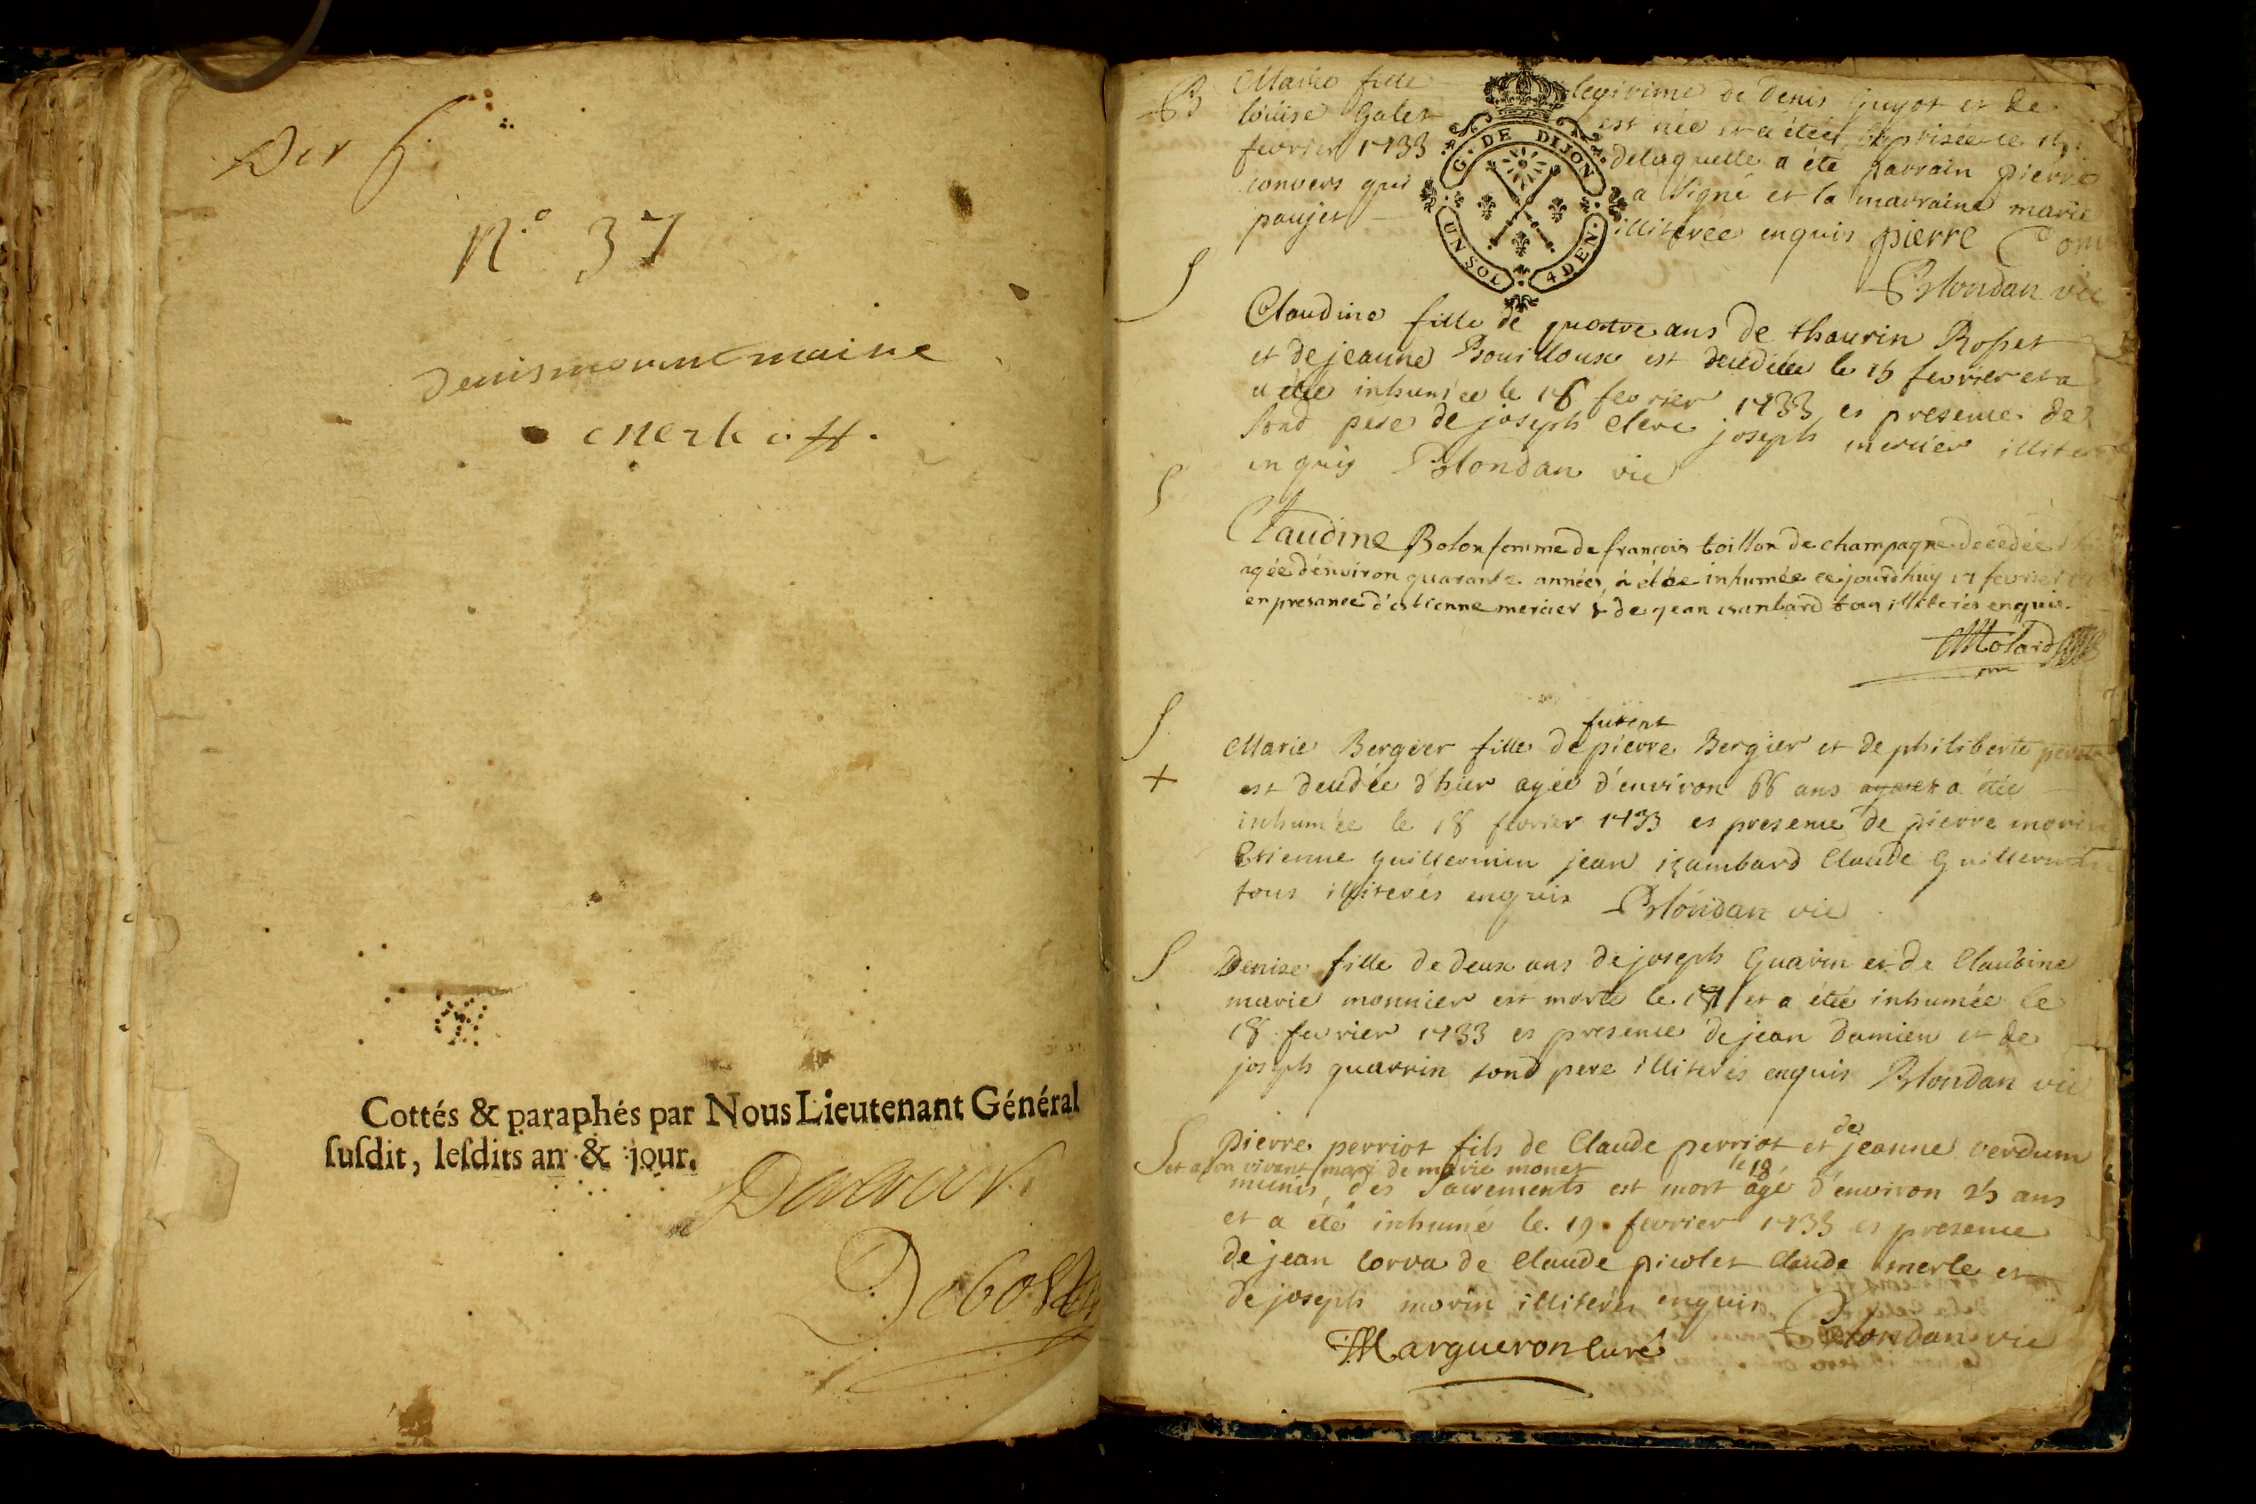 Der
N.° 37
Cottés & paraphés par Nous Lieutenant Général
ſuſdit, leſdits an & jour.
B
Marie fille legitime de Denis Guyot et de
louise Galet est née et a étée baptisée le 15
fevrier 1733 de laquelle a été parrain pierre
convers qui a signé et la marraine marie
paujet illiteree enquis pierre Con
Blondan vic
G. DE DIJON
UN SOL
4 DEN.
S
Claudine fille de quatre ans de thaurin Rosset
et de jeanne Bouilloux est decedée le 15 fevrier et a
étée inhumée le 16 fevrier 1733 es presence de
sond pere de joseph Clerc joseph mercier
enquis Blondan vic
S
Claudine Bolon femme de francois toillon de champagne decedée
agée d'environ quarante années, a étée inhumée ce jourd'huy 17 fevrier
en presance d'estienne mercier & de jean isanbard tous illiterés enquis.
Molard
S
furent
Marie Bergier fille de pierre Bergier et de philiberte
+
est decedée d'hier agée d'environ 66 ans a étée
inhumée le 18 fevrier 1733 es presence de pierre morin
Etienne guillermin jean izambard Claude Guillermin
tous illiterés enquis Blondan vic
S
Denise fille de deux ans de joseph Guarin et de Claudine
marie monnier est morte le 17 et a étée inhumée le
18 fevrier 1733 es presence de jean damien et de
joseph guarrin sond pere illiterés enquis Blondan vic
S
pierre perriot fils de Claude perriot et de jeanne verdum
et a son vivant mary de marie monet
munis des Sacrements est mort le 18 agé d'environ 25 ans
et a été inhumé le 19 fevrier 1733 es presence
de jean Corva de Claude picolet Claude merle et
de joseph morin illiterés enquis
Blondan vic
Margueron Curé